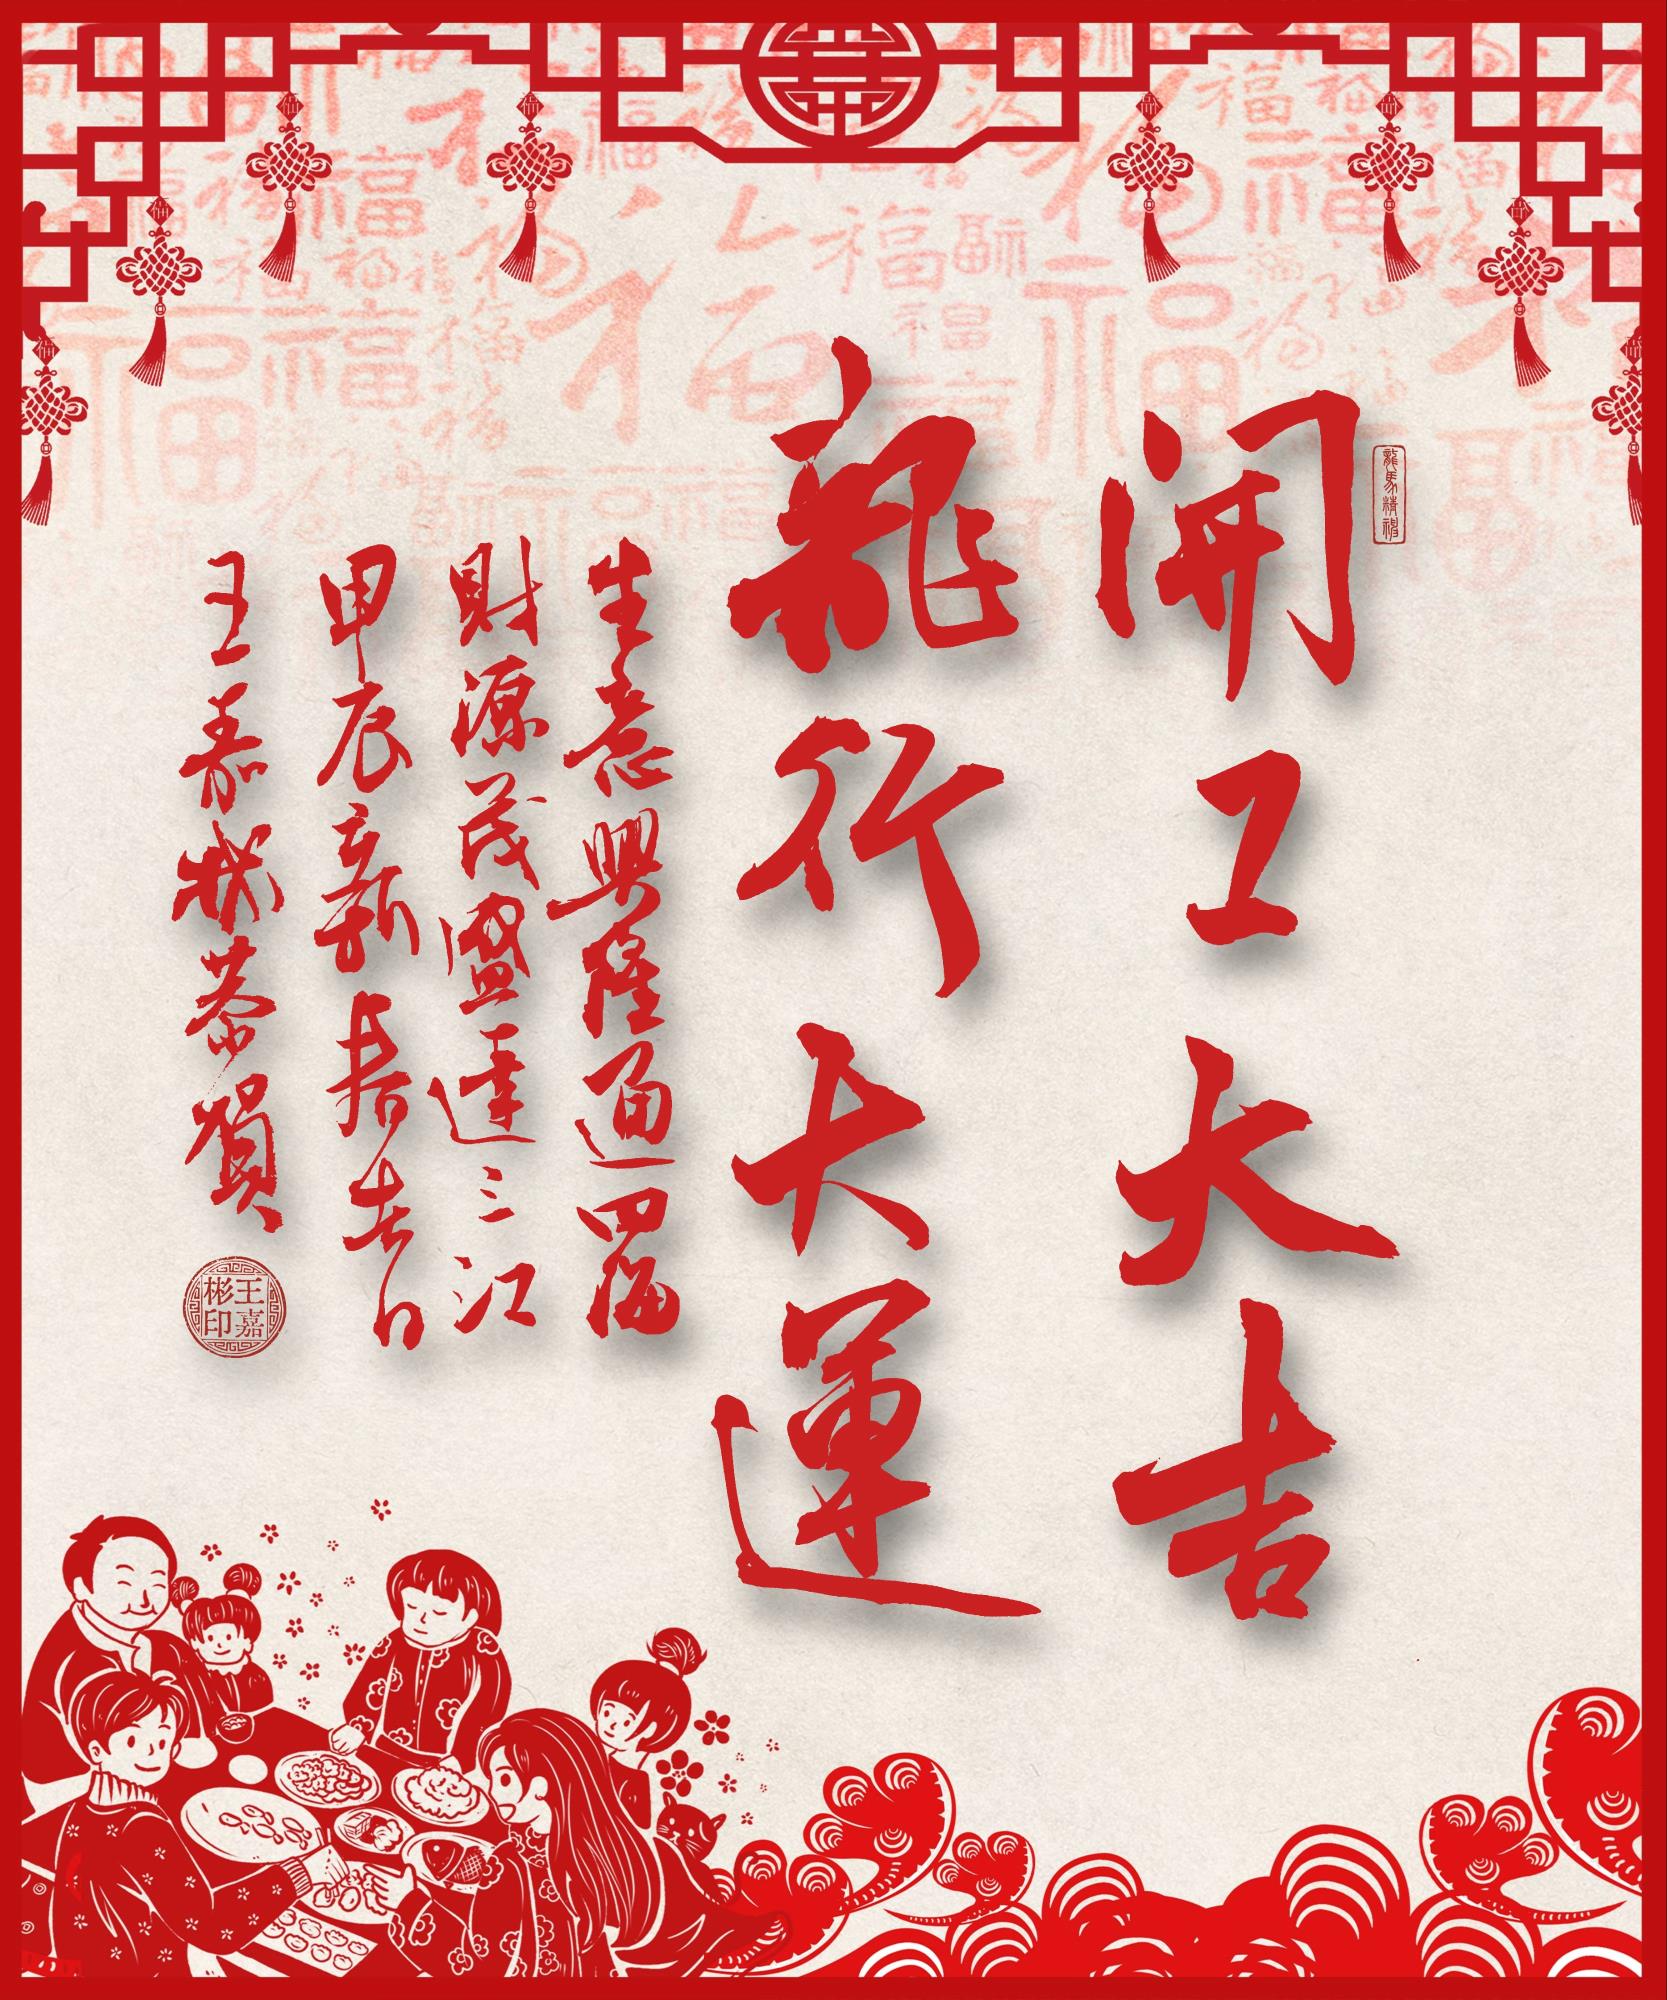 龍馬精神
開工大吉
龍行大運
生意興隆通四海
財源茂盛達三江
甲辰新春吉日
王嘉彬恭賀
王嘉彬印